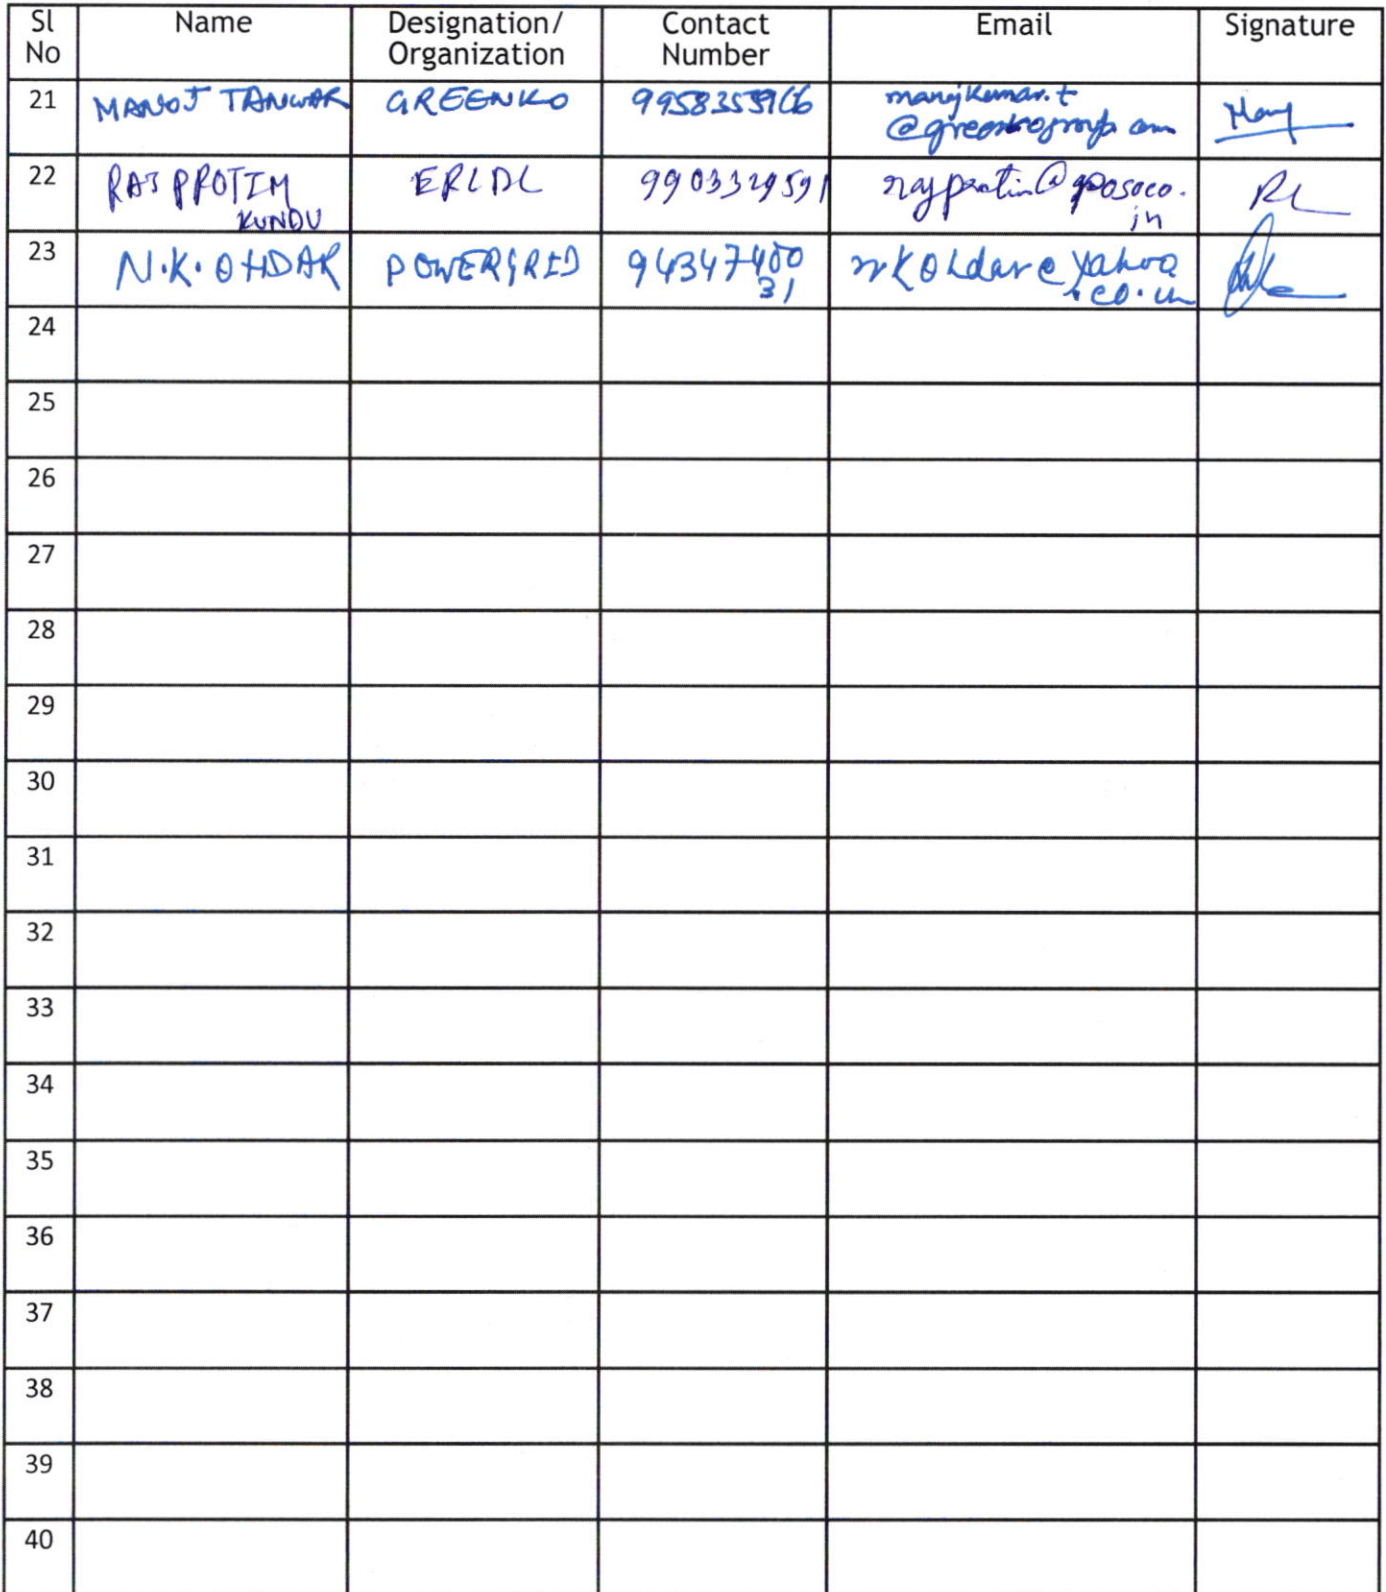 Sl No Name Designation/ Organization Contact Number Email Signature
21 MANOJ TANWAR GREENKO 9958355966 manojkumar.t @greenkogroup.com
22 RAJ PROTIM KUNDU ERLDC 9903329591 rajprotim@posoco.in
23 N.K. OHDAR POWERGRID 9434740031 nkohdar@yahoo.co.in
24
25
26
27
28
29
30
31
32
33
34
35
36
37
38
39
40